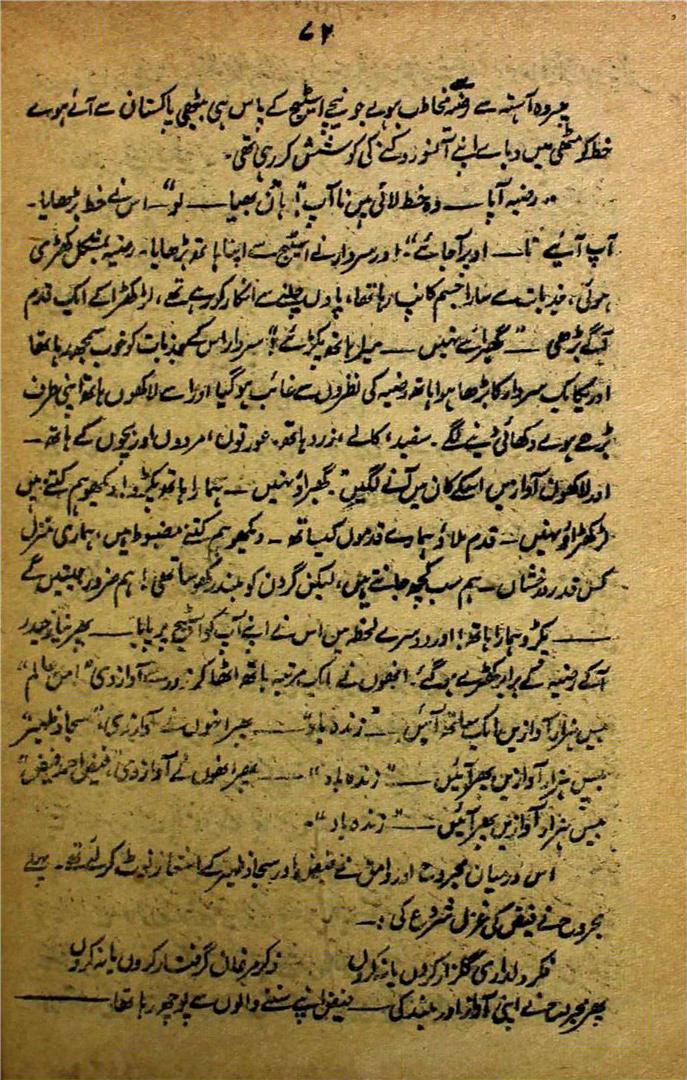 ۷۲
پھر وہ آہستہ سے رضیہ سے مخاطب ہوے جو نیچے اسٹیج کے پاس ہی بیٹھی پاکستان سے آئے ہوے
خط کو مٹھی میں دبائے اپنے آنسو روکنے کی کوشش کر رہی تھی۔
"رضیہ آپا — وہ خط لائی ہیں نا آپ"؟ ہاں بھیا — لو"— اس نے خط بڑھایا۔
آپ آیئے نا— اوپر آجائے"۔ اور سردار نے اسٹیج سے اپنا ہاتھ بڑھایا۔ رضیہ بمشکل کھڑی
ہوئی، جذبات سے سارا جسم کانپ رہا تھا، پاوں چلنے سے انکار کر رہے تھے، لڑکھڑا کے ایک قدم
آگے بڑھی — "گھبرائے نہیں — میرا ہاتھ پکڑئے"؛ سردار اس کے جذبات کو خوب سمجھ رہا تھا
اور یکایک سردار کا بڑھا ہوا ہاتھ رضیہ کی نظروں سے غائب ہو گیا اور اسے لاکھوں ہاتھ اپنی طرف
بڑھے ہوے دکھائی دینے لگے۔ سفید، کالے، زرد ہاتھ۔ عورتوں، مردوں اور بچوں کے ہاتھ—
اور لاکھوں آوازیں اسکے کان میں آنے لگیں"۔ گھبراؤ نہیں — ہمارا ہاتھ پکڑو! دیکھو ہم کتنے ہیں
لڑکھڑاؤ نہیں — قدم ملاؤ ہمارے قدموں کیساتھ — دیکھو ہم کتنے مضبوط ہیں، ہماری منزل
کس قدر درخشاں — ہم سب کچھ جانتے ہیں، لیکن گردن کو بلند رکھو ساتھی! ہم ضرور جیتیں گے
— پکڑو ہمارا ہاتھ! اور دوسرے لحظہ میں اس نے اپنے آپ کو اسٹیج پر پایا — پھر نیاز حیدر
آکے رضیہ کے برابر کھڑے ہو گئے۔ انھوں نے ایک مرتبہ ہاتھ اٹھا کر زور سے آواز دی "امن عالم"
بیس ہزار آوازیں ایک ساتھ آئیں — "زندہ باد" — پھر انہوں نے آواز دی، "سجاد ظہیر"
بیس ہزار آوازیں پھر آئیں — "زندہ باد" — پھر انھوں نے آواز دی، "فیض احمد فیض"
بیس ہزار آوازیں پھر آئیں — "زندہ باد"۔
اس درمیان مجروح اور وامق نے فیض اور سجاد ظہیر کے اشعار نوٹ کر لئے تھے۔ پہلے
مجروح نے فیض کی غزل شروع کی:—
فکر دلداری گلزار کروں یا نہ کروں ذکر مرغان گرفتار کروں یا نہ کروں
پھر مجروح نے اپنی آواز اور بلند کی — فیض اپنے سننے والوں سے پوچھ رہا تھا —